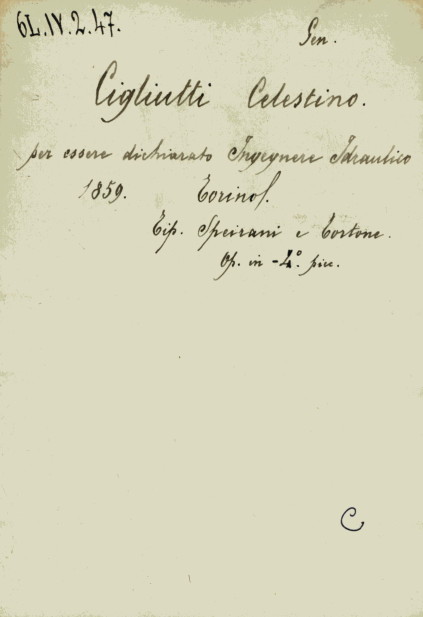 6L.IV.2.47.
Gen.
Cigliutti Celestino.
per essere dichiarato Ingegnere Idraulico
1859. Torino.
Tip. Speirani e Tortone.
Op. in-4.° picc.
C